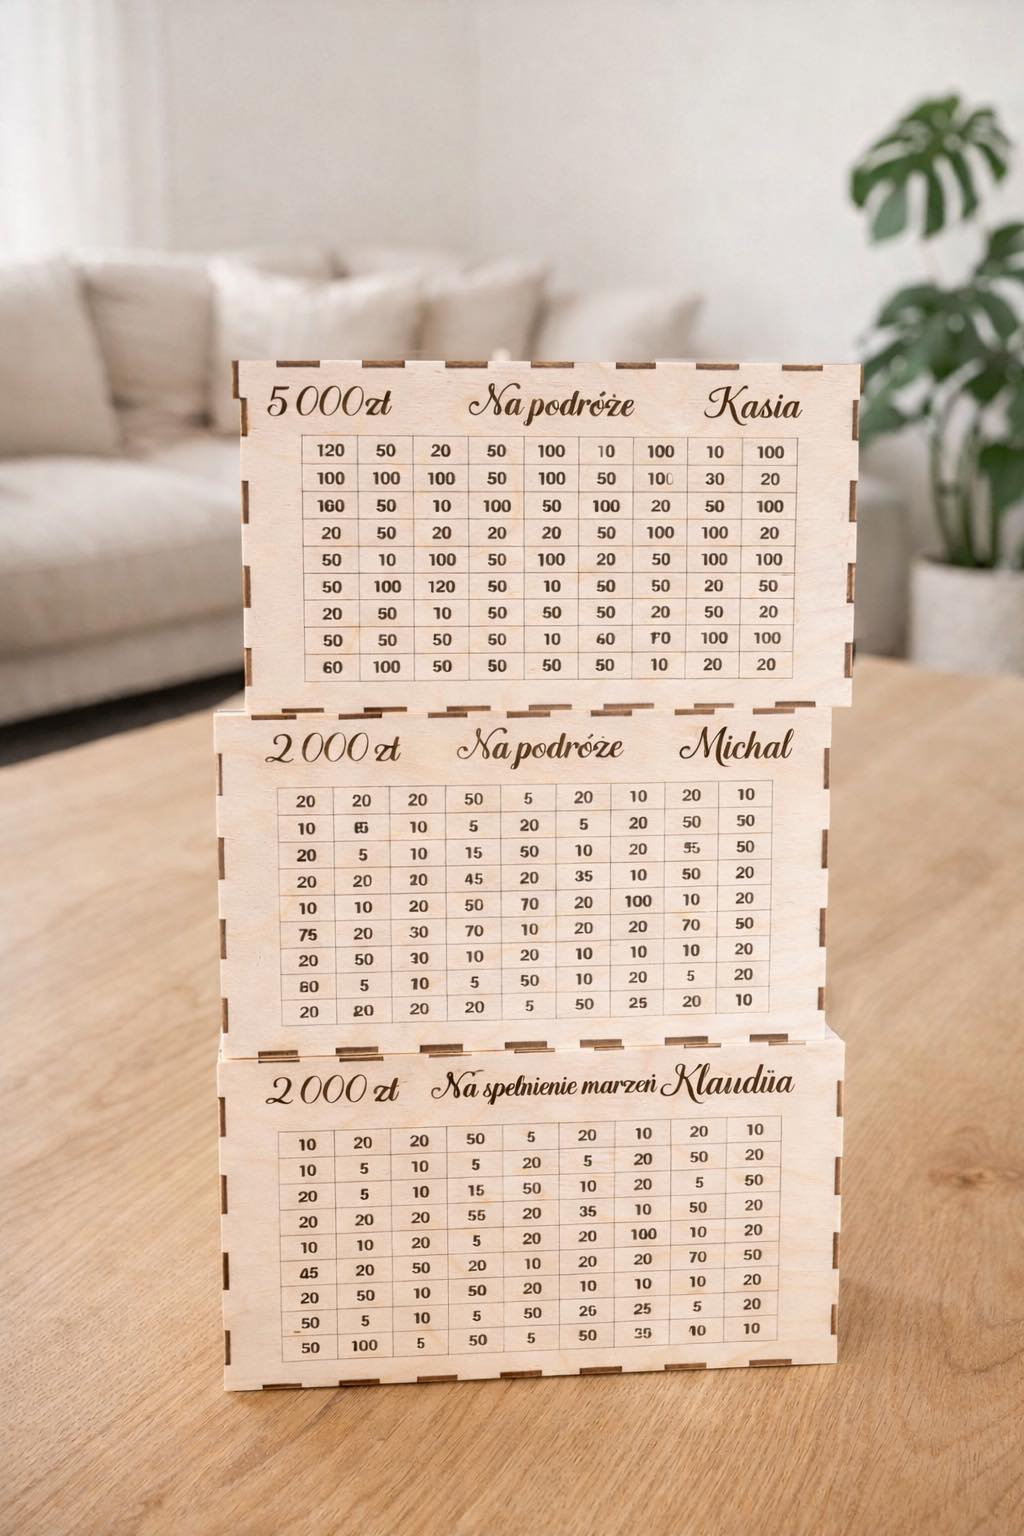 5 000 zł Na podróże Kasia
120 50 20 50 100 10 100 10 100
100 100 100 50 100 50 100 30 20
160 50 10 100 50 100 20 50 100
20 50 20 20 20 50 100 100 20
50 10 100 50 100 20 50 100 100
50 100 120 50 10 50 50 20 50
20 50 10 50 50 50 20 50 20
50 50 50 50 10 60 100 100
60 100 50 50 50 50 10 20 20
2 000 zł Na podróże Michal
20 20 20 50 5 20 10 20 10
10 10 5 20 5 20 50 50
20 5 10 15 50 10 20 50
20 20 20 45 20 35 10 50 20
10 10 20 50 70 20 100 10 20
75 20 30 70 10 20 20 70 50
20 50 10 20 10 10 10 20
5 10 5 50 10 20 5 20
20 20 20 20 5 50 25 20 10
2 000 zł Na spełnienie marzeń Klaudiia
10 20 20 50 5 20 10 20 10
10 5 10 5 20 5 20 50 20
20 5 10 15 50 10 20 5 50
20 20 20 55 20 35 10 50 20
10 10 20 5 20 20 100 10 20
45 20 50 20 10 20 20 70 50
20 50 10 50 20 10 10 10 20
50 5 10 5 50 26 25 5 20
50 100 5 50 5 50 10 10